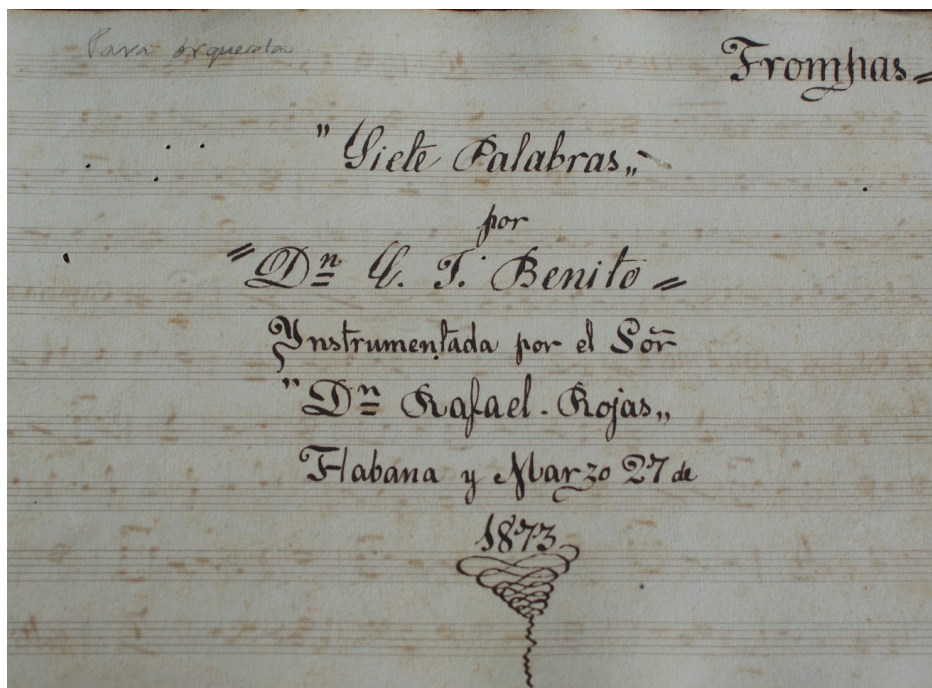 Para orquesta
Trompas =
" Siete Palabras „
por
= Dn G. T. Benito =
Ynstrumentada por el Sor
" Dn Rafael. Rojas „
Habana y Marzo 27 de
1873